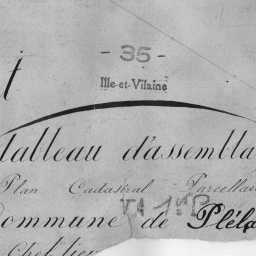 - 35 -
Ille-et-Vilaine
t
Tableau d'assembla
Plan Cadastral Parcellai
Commune de Pléla
Chef-lieu